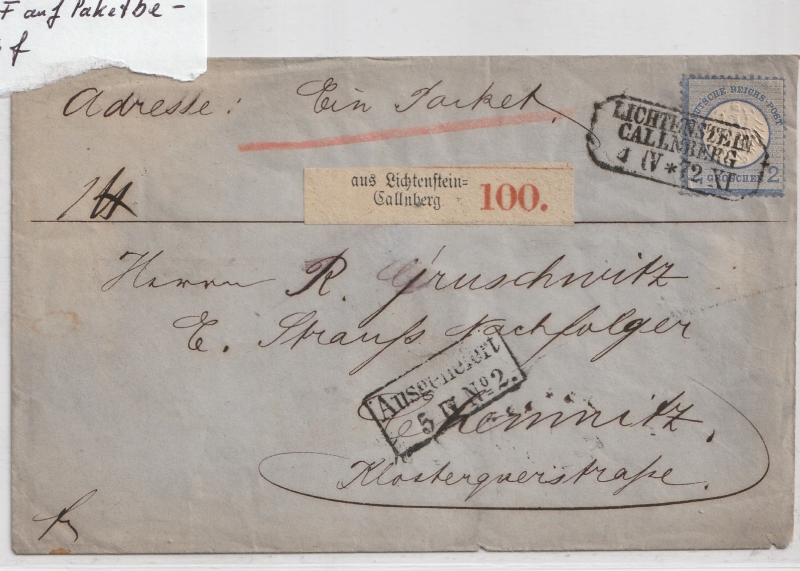 F auf Paketbe-
f
Adresse: Ein Packet.
LICHTENSTEIN
CALLNBERG
4 IV * 72 XI
DEUTSCHE REICHS-POST
2 GROSCHEN 2
aus Lichtenstein=
Callnberg
100.
Herrn R. Gruschwitz
E. Strauß Nachfolger
Ausgeliefert
5 IV No 2.
Chemnitz,
Klosterquerstraße.
fr